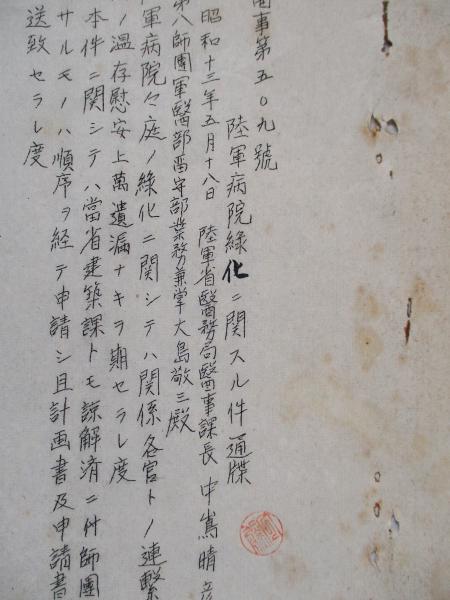 事第五〇九號
陸軍病院綠化ニ関スル件通牒
昭和十三年五月十八日 陸軍省醫務局醫事課長 中嶌晴
第八師團軍醫部留守部業務兼掌大島敬三殿
軍病院々庭ノ綠化ニ関シテハ関係各官トノ連繫
ノ温存慰安上萬遺漏ナキヲ期セラレ度
本件ニ関シテハ當省建築課トモ諒解済ニ付師團
サルモノハ順序ヲ経テ申請シ且計画書及申請書
送致セラレ度